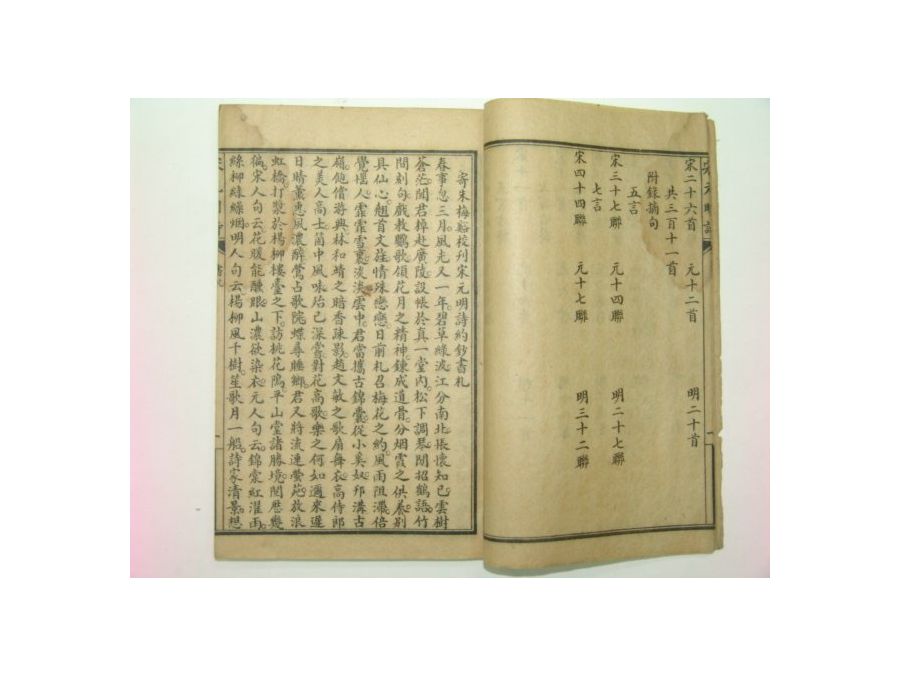 宋元明詩
宋二十六首　元十二首　明二十首
共三百十一首
附錄摘句
五言
宋三十七聯　元十四聯　明二十七聯
七言
宋四十四聯　元十七聯　明三十二聯
寄朱梅谿校刊宋元明詩約鈔書札
春事怱怱三月風光又一年碧草綠波江分南北悵懷知己雲樹
蒼茫聞君棹赴廣陵設帳於真一堂內松下調琴閒招鶴語竹
間刻句戲教鸚歌領花月之精神鍊成道骨分烟霞之供養別
具仙心翹首文旌情殊戀戀日前札召梅花之約風雨阻濃倍
覺煙人霏霏雪裏淡淡雲中君當攜古錦囊從小奚奴邗溝古
廟飽償游興林和靖之暗香疎影趙文敏之歌扇舞衣高侍郎
之美人高士箇中風味殆已深嘗對花高歌樂之何如邇來遲
日晴薰惠風濃醉鶯占歌院蝶尋睡鄉君又將流連螢苑放浪
虹橋打漿於楊柳樓臺之下訪桃花隝平山堂諸勝境閱歷幾
徧宋人句云花暖能醺眼山濃欲染衣元人句云錦棠紅濯雨
絲柳綠繰烟明人句云楊柳風千樹笙歌月一般詩家清景想